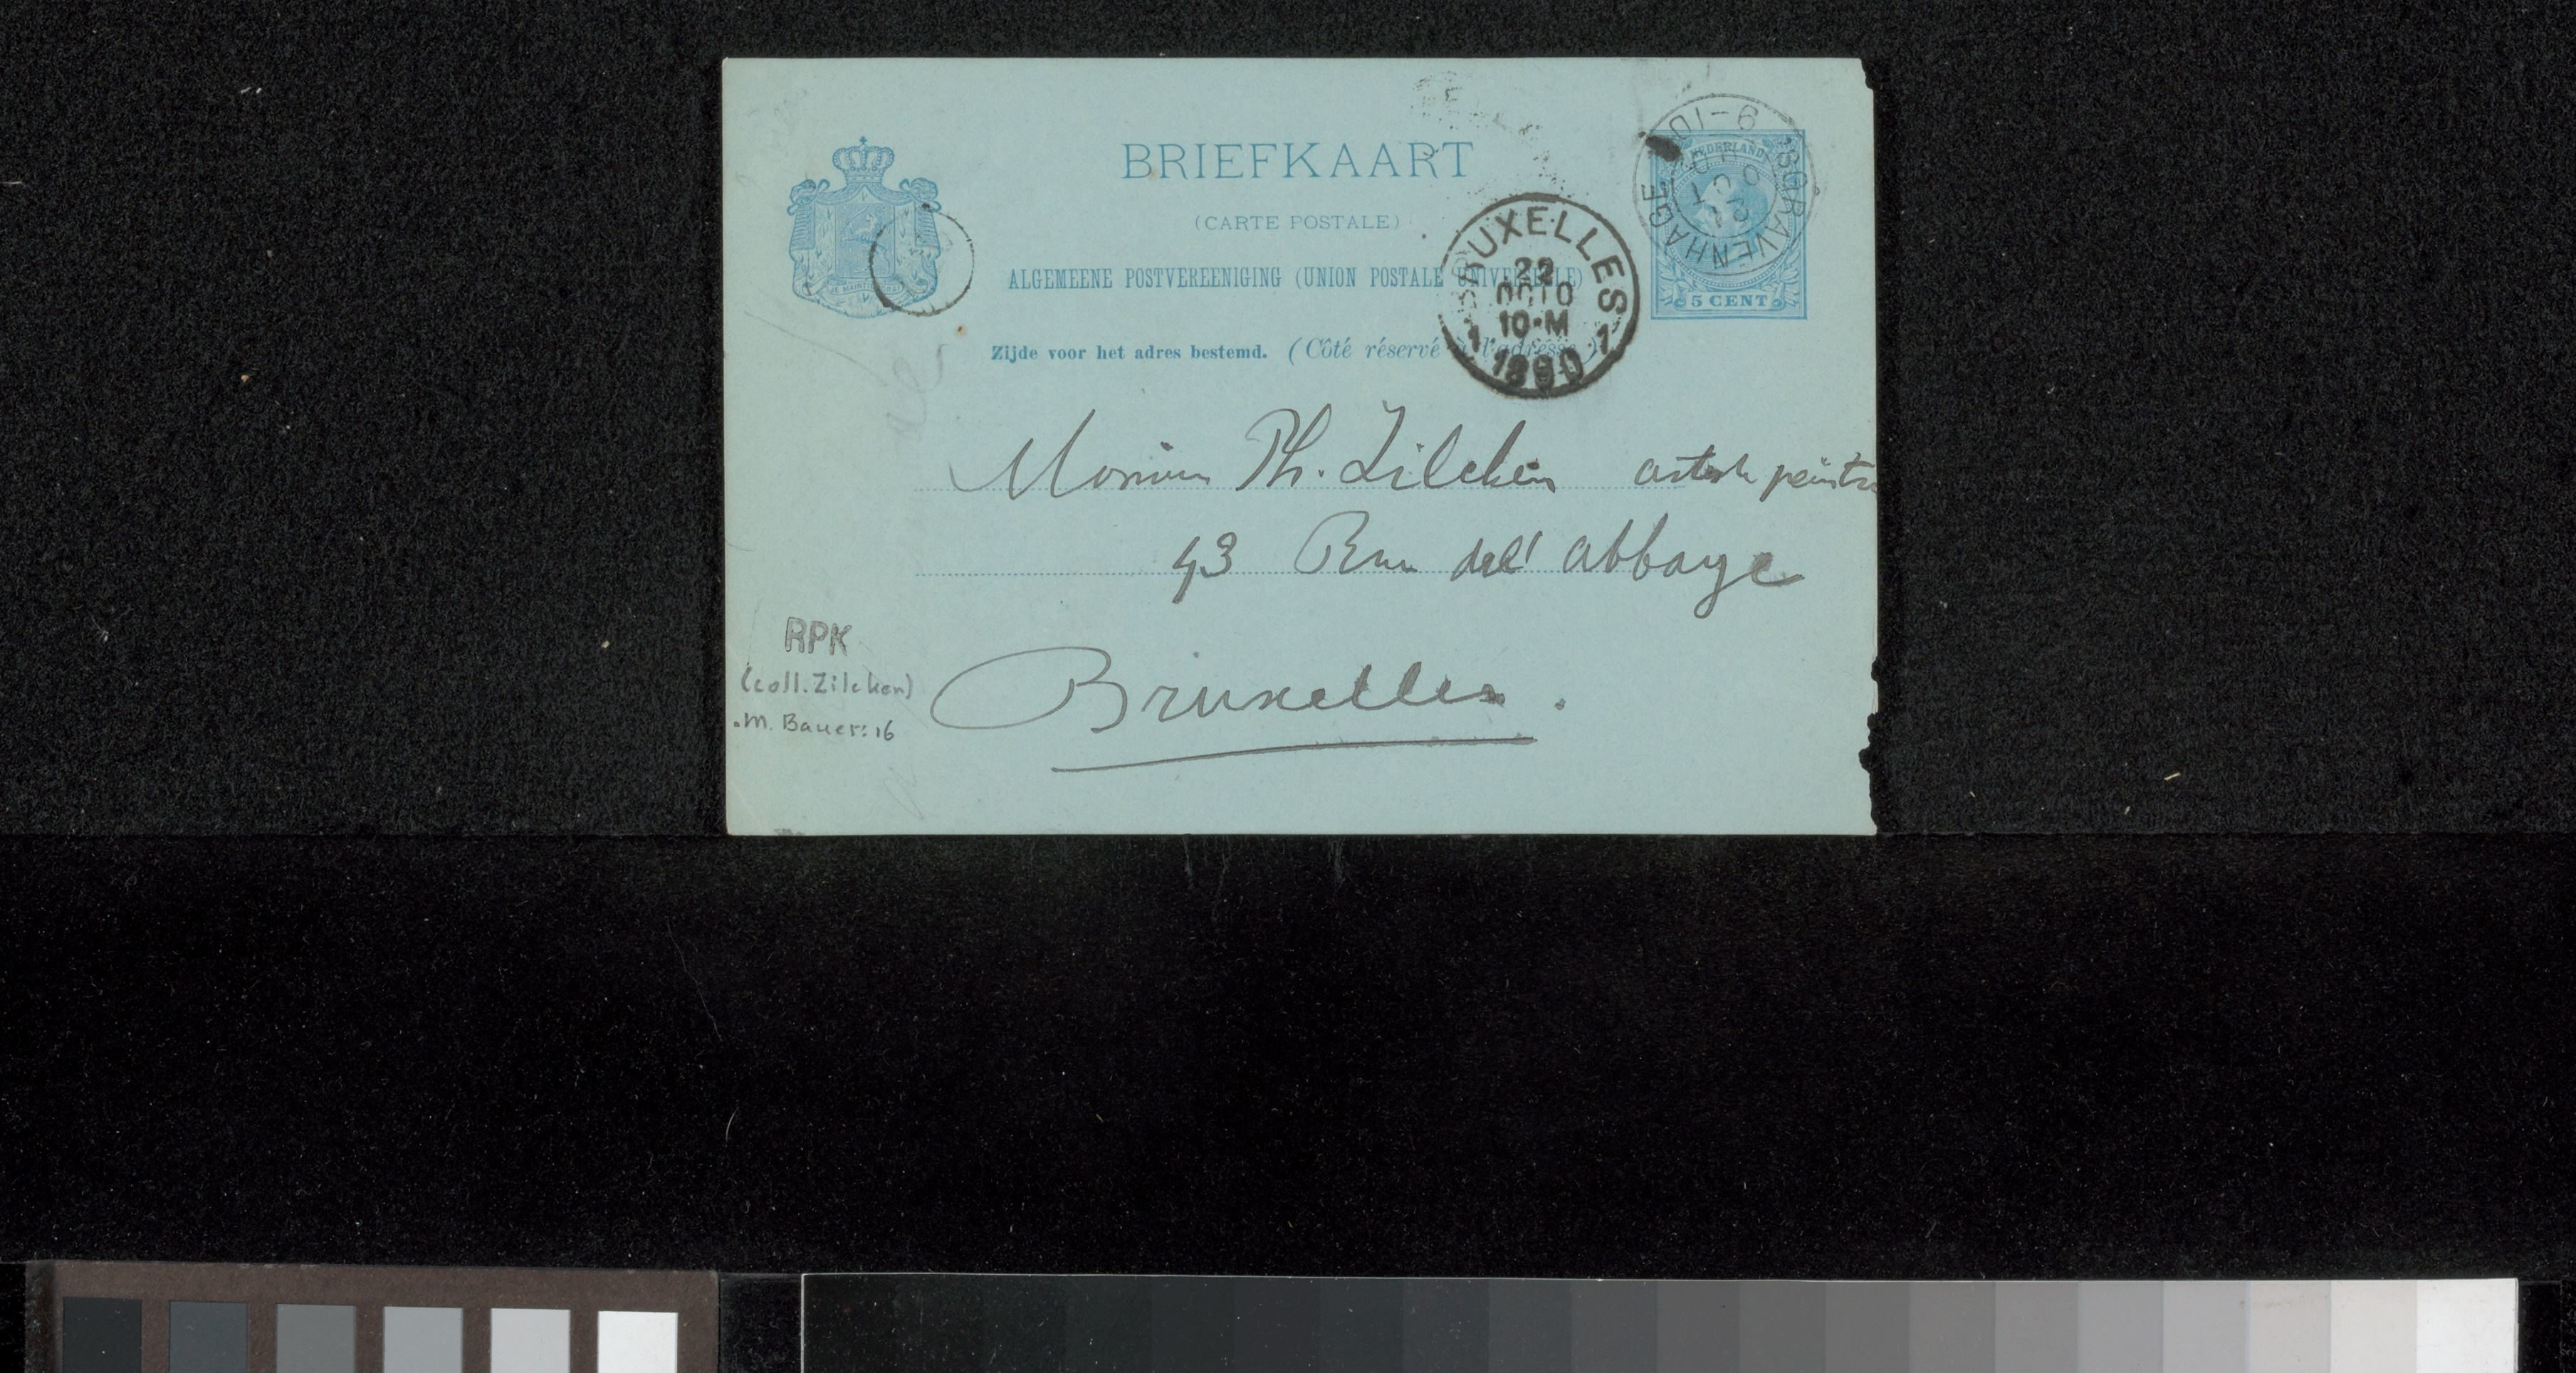 BRIEFKAART
(CARTE POSTALE)
ALGEMEENE POSTVEREENIGING (UNION POSTALE UNIVERSELLE)
Zijde voor het adres bestemd. (Côté réservé à l'adresse.)
NEDERLAND
5 CENT
JE MAINTIENDRAI
'S GRAVENHAGE
21 OCT 90
9-10
BRUXELLES
22
OCTO
10-M
1 1890 1
Monsieur Ph. Zilcken artiste peintre
43 Rue de l'abbaye
Bruxelles.
RPK
(coll. Zilcken)
M. Bauer: 16